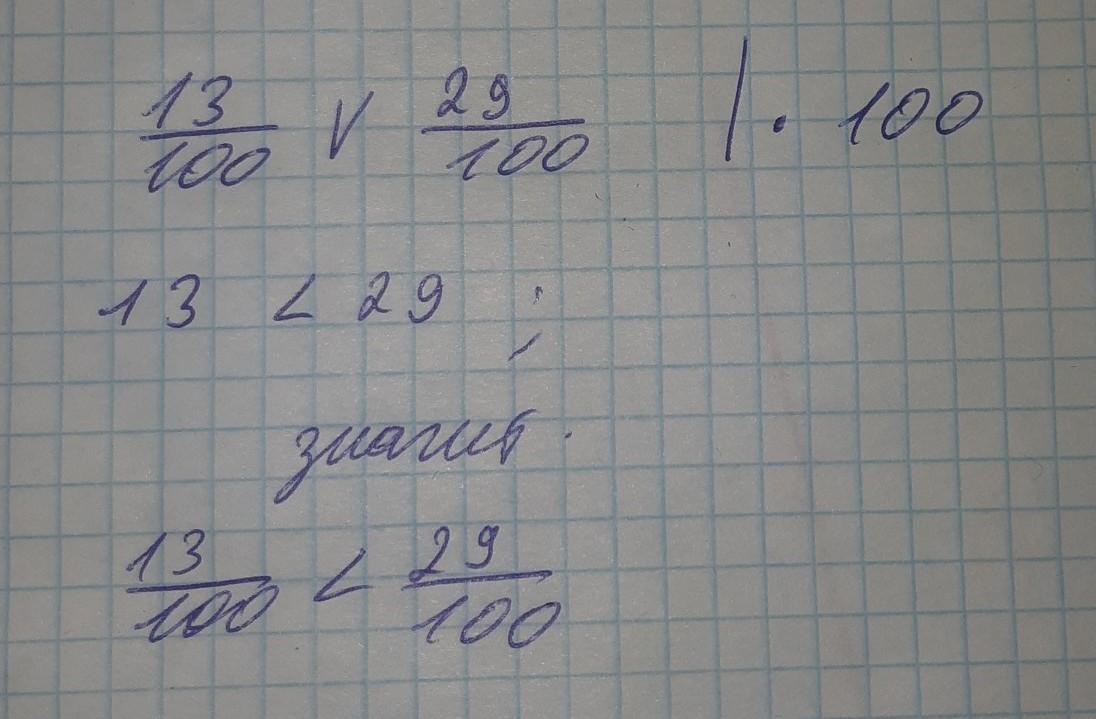 13/100 V 29/100 | · 100
13 < 29 ;
значит
13/100 < 29/100